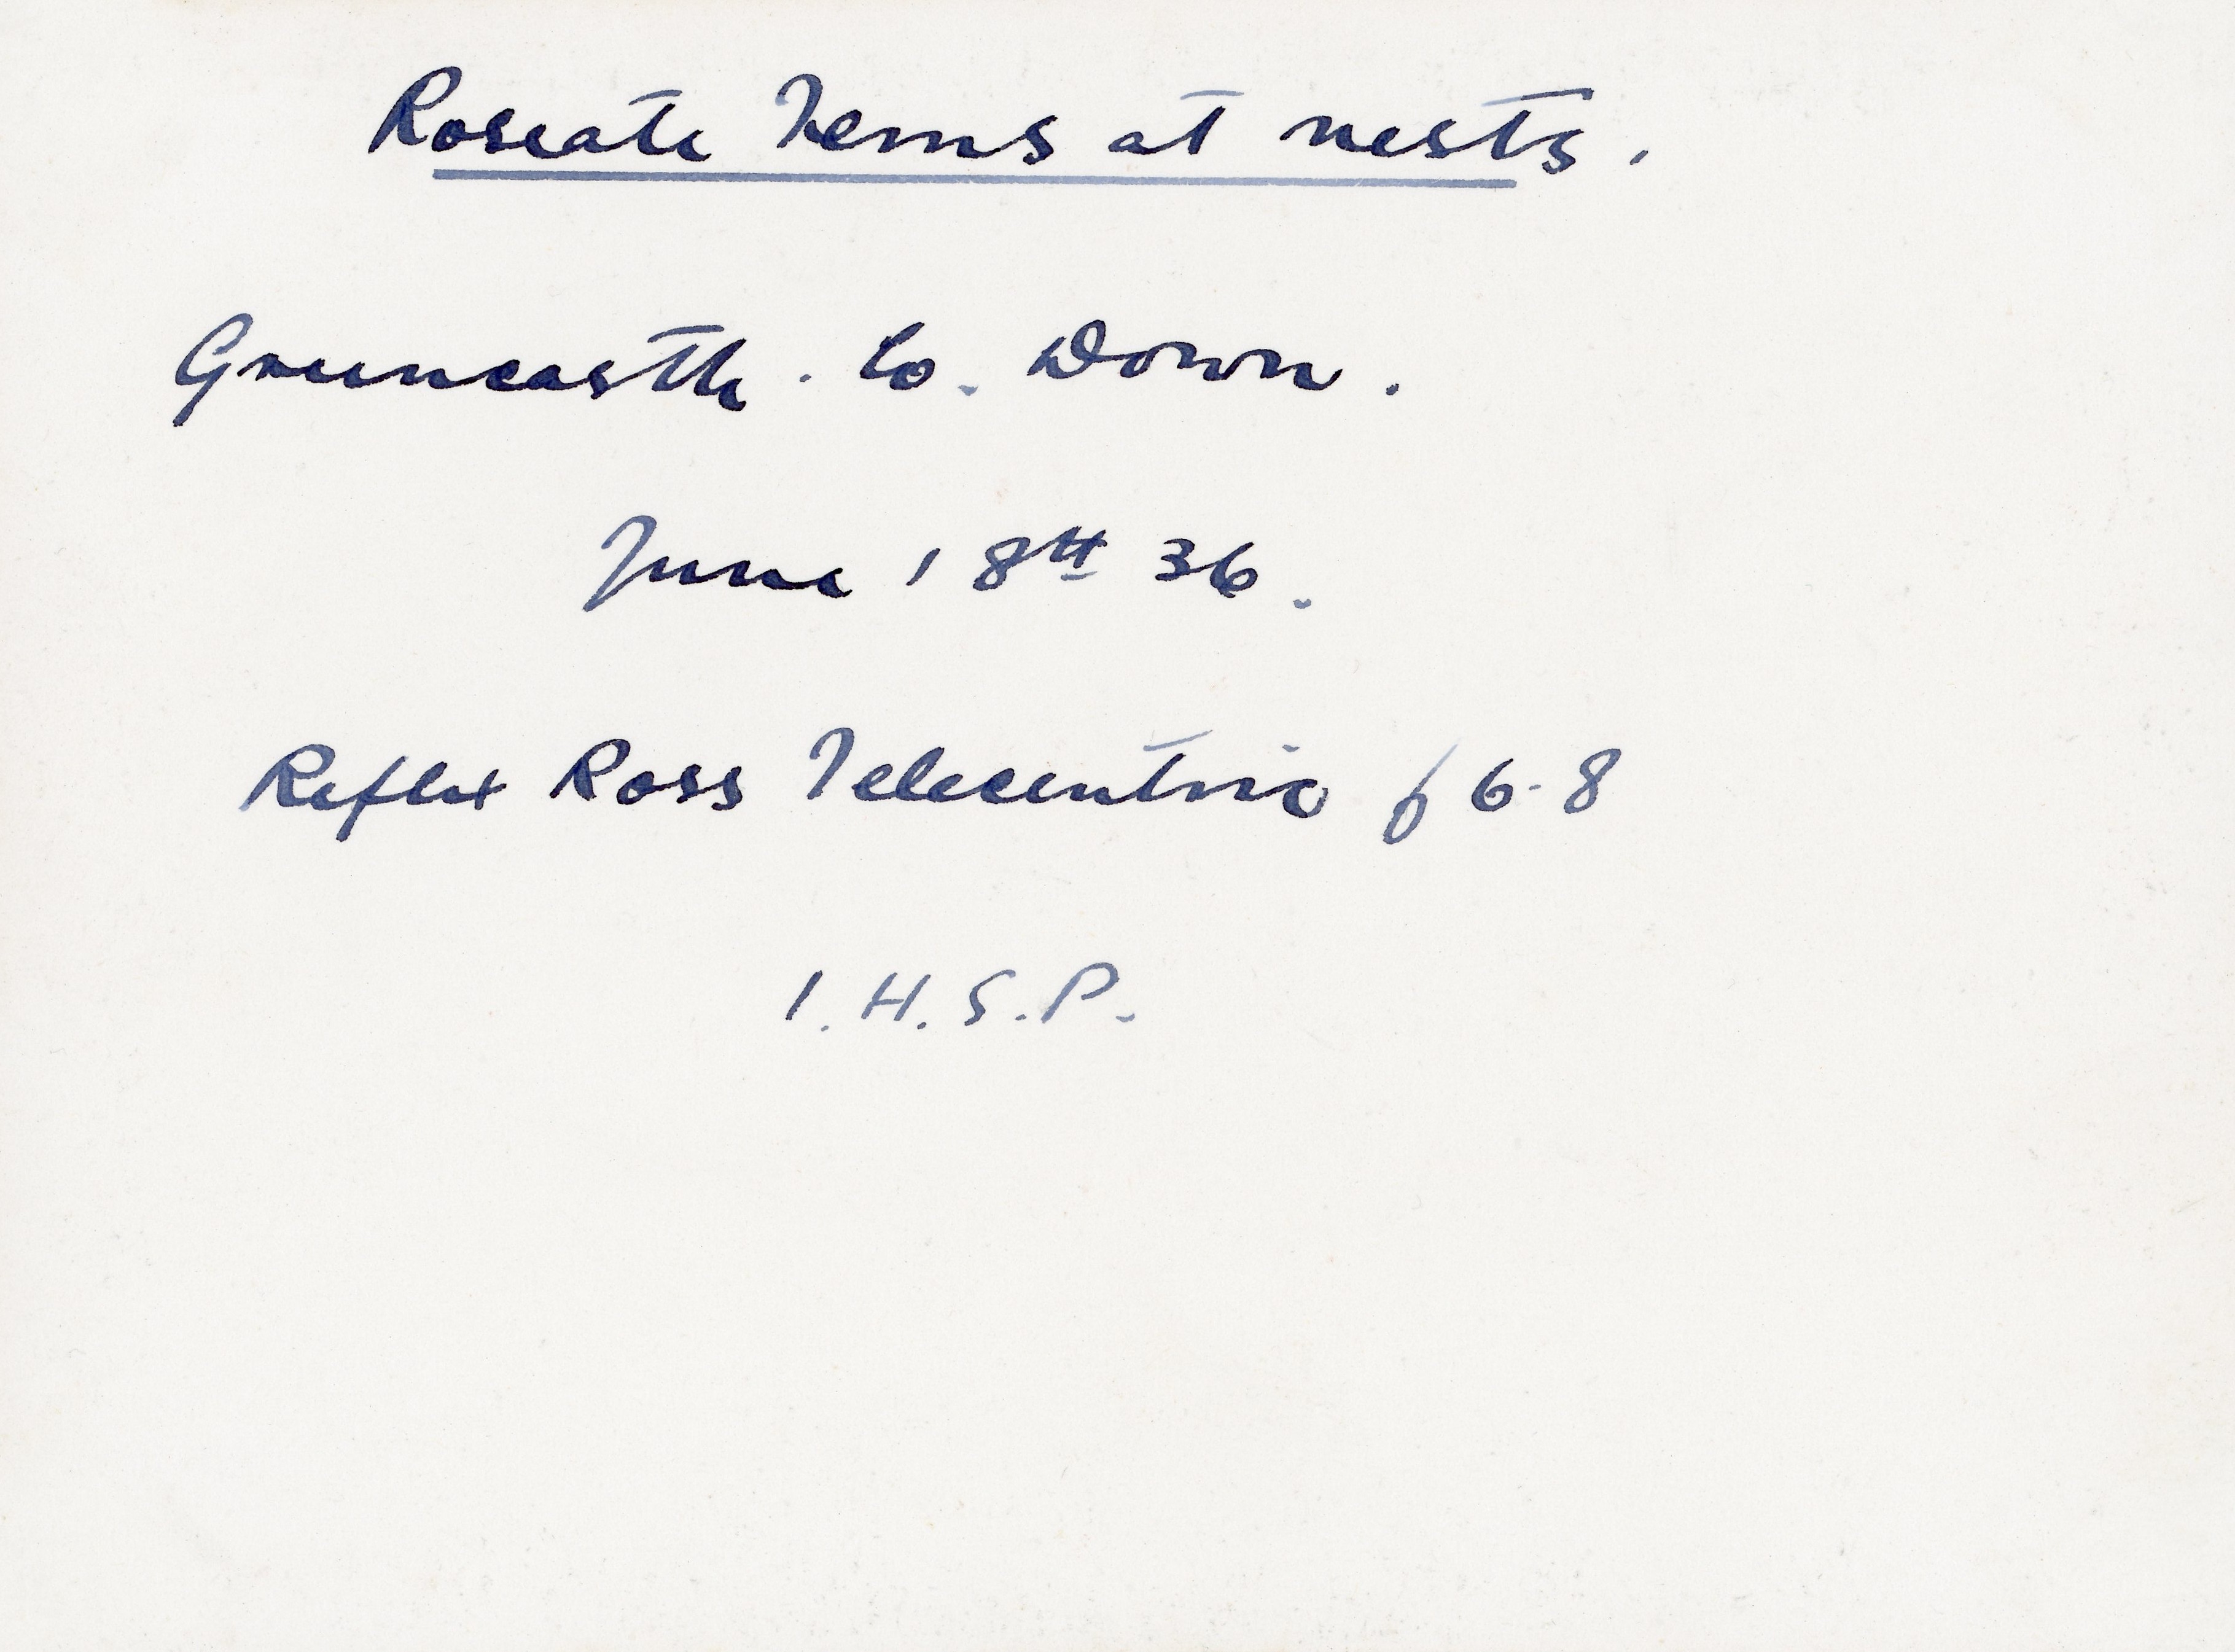 Roseate Terns at nests.
Greencastle. Co. Down.
June 18th 36.
Reflex Ross Telecentric f 6.8
I.H.S.P.